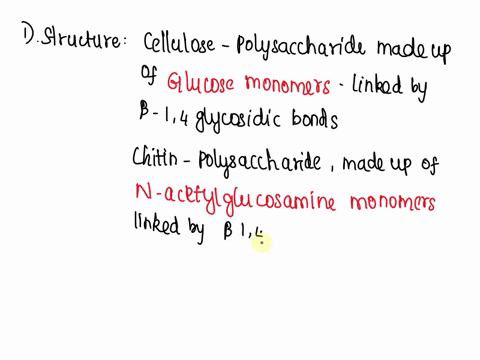 1). Structure: Cellulose - Polysaccharide made up
of Glucose monomers - linked by
β-1,4 glycosidic bonds
Chitin - Polysaccharide, made up of
N-acetylglucosamine monomers
linked by β 1,4